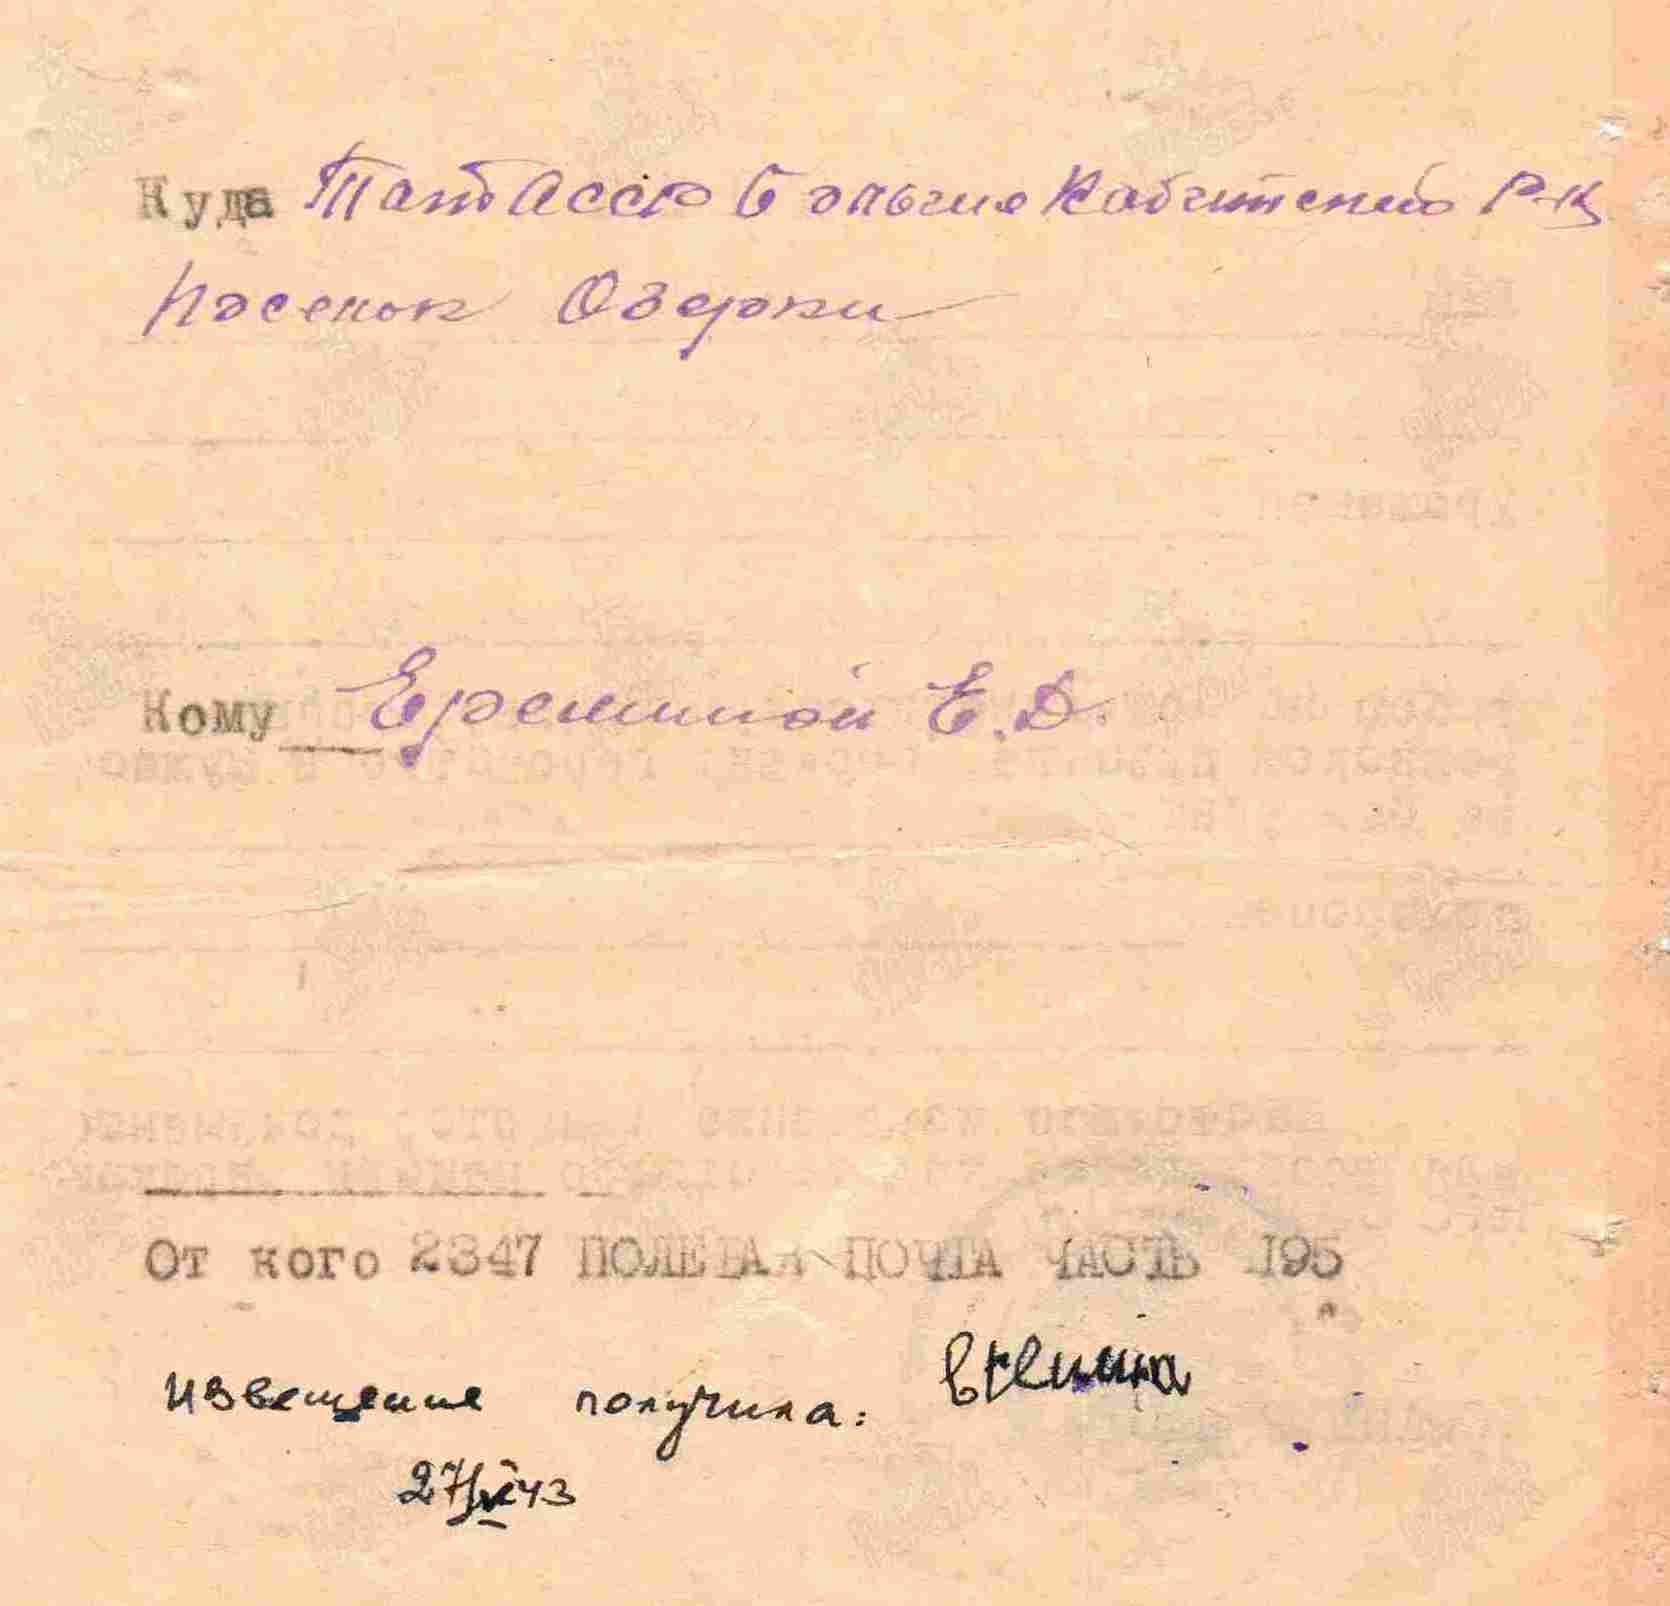 Куда ТатАССР Больше Кабитский Р-Н
Поселок Озерки
Кому Ереминой Е.Д.
От кого 2347 ПОЛЕВАЯ ПОЧТА ЧАСТЬ 195
извещение получила:
27/V 43